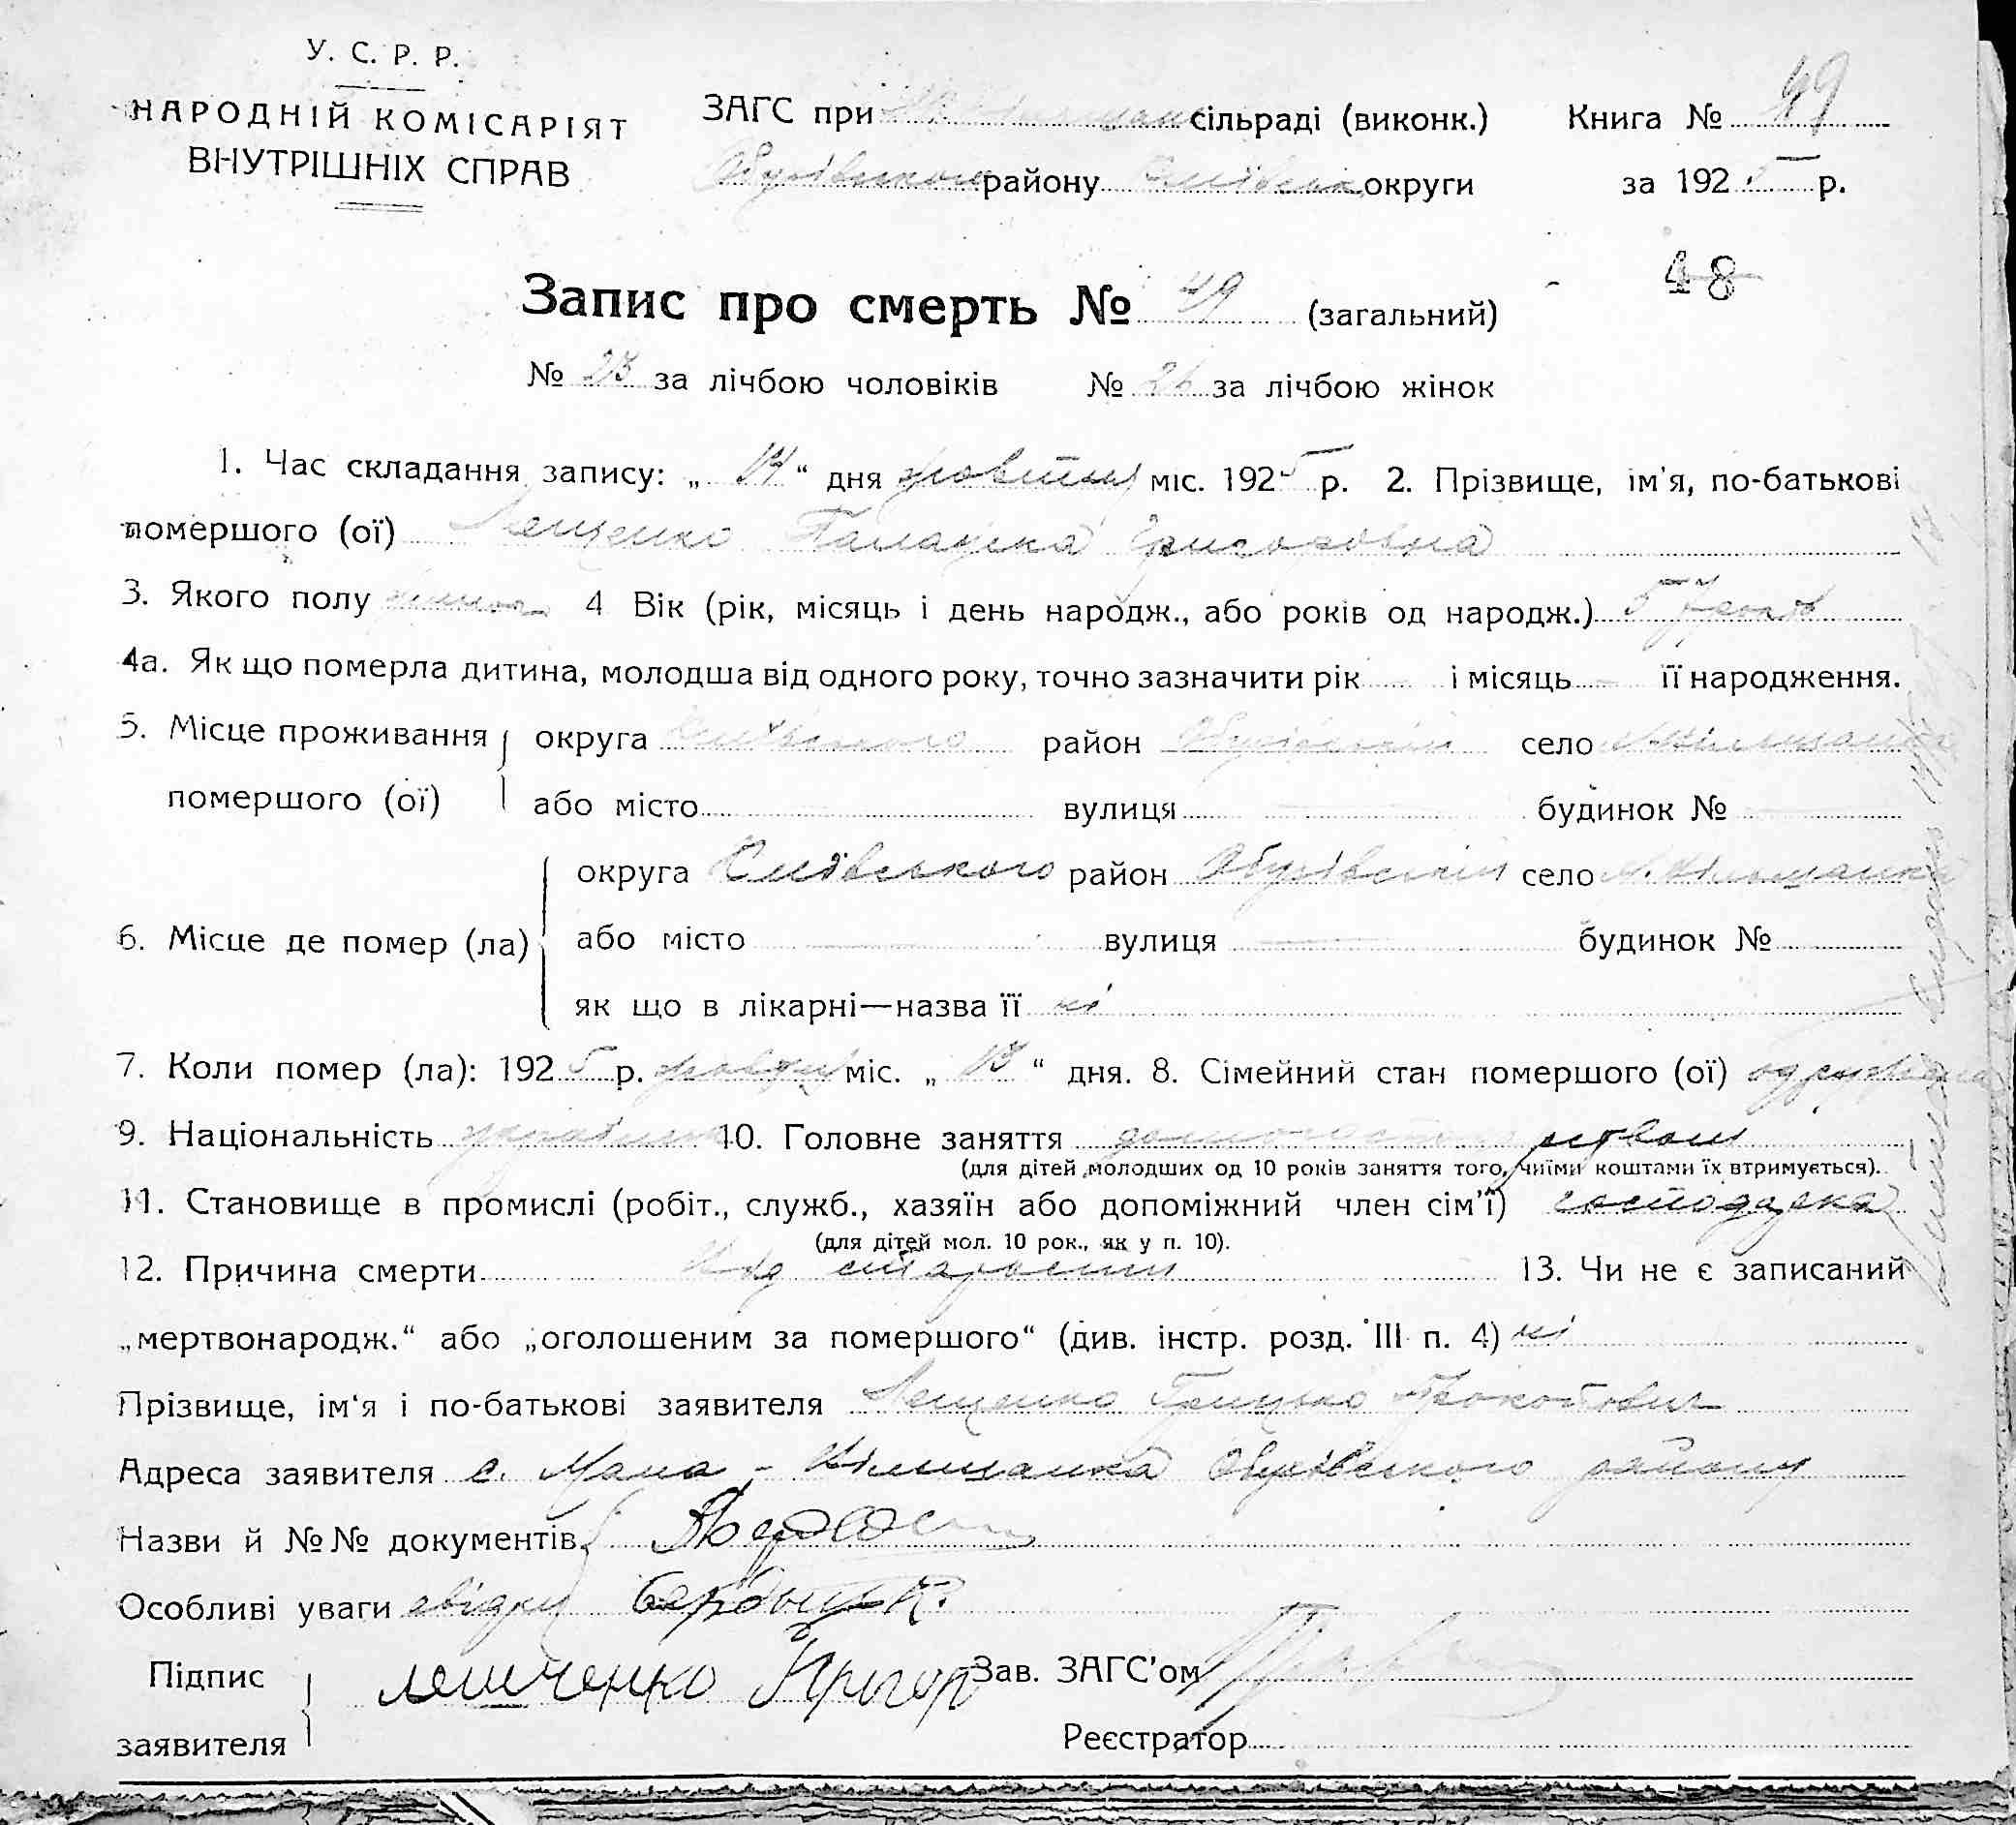 У. С. Р. Р.
НАРОДНІЙ КОМІСАРІЯТ
ВНУТРІШНІХ СПРАВ
ЗАГС при сільраді (виконк.)
Обухівського району Київськ округи
Книга № 49
за 1925 р.
48
Запис про смерть № 49 (загальний)
№ 23 за лічбою чоловіків № 26 за лічбою жінок
1. Час складання запису: „ 14 “ дня жовтня міс. 1925 р. 2. Прізвище, ім'я, по-батькові
помершого (ої) Лещенко Палажка Григоровна
3. Якого полу 4 Вік (рік, місяць і день народж., або років од народж.) 57 років
4а. Як що померла дитина, молодша від одного року, точно зазначити рік і місяць її народження.
5. Місце проживання округа Київського район Обухівський село М. Вільшанка
помершого (ої) або місто вулиця будинок №
округа Київського район Обухівський село М. Вільшанка
6. Місце де помер (ла) або місто вулиця будинок №
як що в лікарні—назва її ні
7. Коли помер (ла): 1925 р. жовтня міс. „ 13 “ дня. 8. Сімейний стан помершого (ої) одружена
9. Національність 10. Головне заняття
(для дітей молодших од 10 років заняття того, чиїми коштами їх втримується).
11. Становище в промислі (робіт., служб., хазяїн або допоміжний член сім'ї) господарка
(для дітей мол. 10 рок., як у п. 10).
12. Причина смерти Від старости 13. Чи не є записаний
„мертвонародж.“ або „оголошеним за помершого“ (див. інстр. розд. III п. 4) ні
Прізвище, ім'я і по-батькові заявителя Лещенко Грицько Прокопович
Адреса заявителя с. Мала - Вільшанка Обухівського району
Назви й №№ документів
Особливі уваги свідки
Підпис
заявителя
лешченко Григор
Зав. ЗАГС'ом
Реєстратор